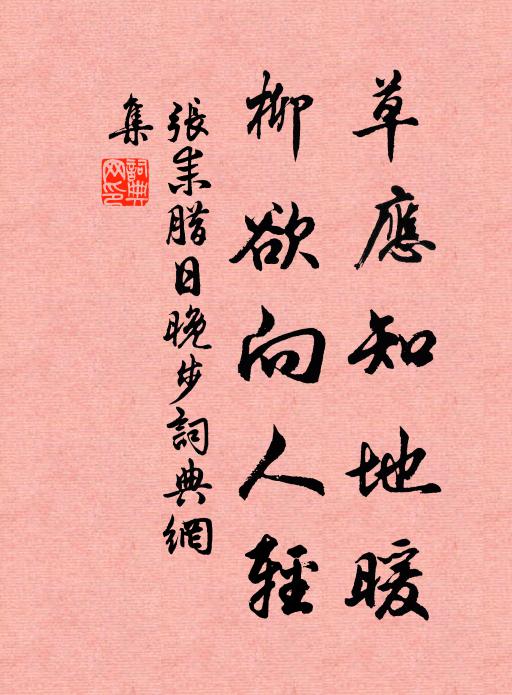 草應知地暖
柳欲向人輕
張耒臘日晚步詞典網
集
詞典
网印